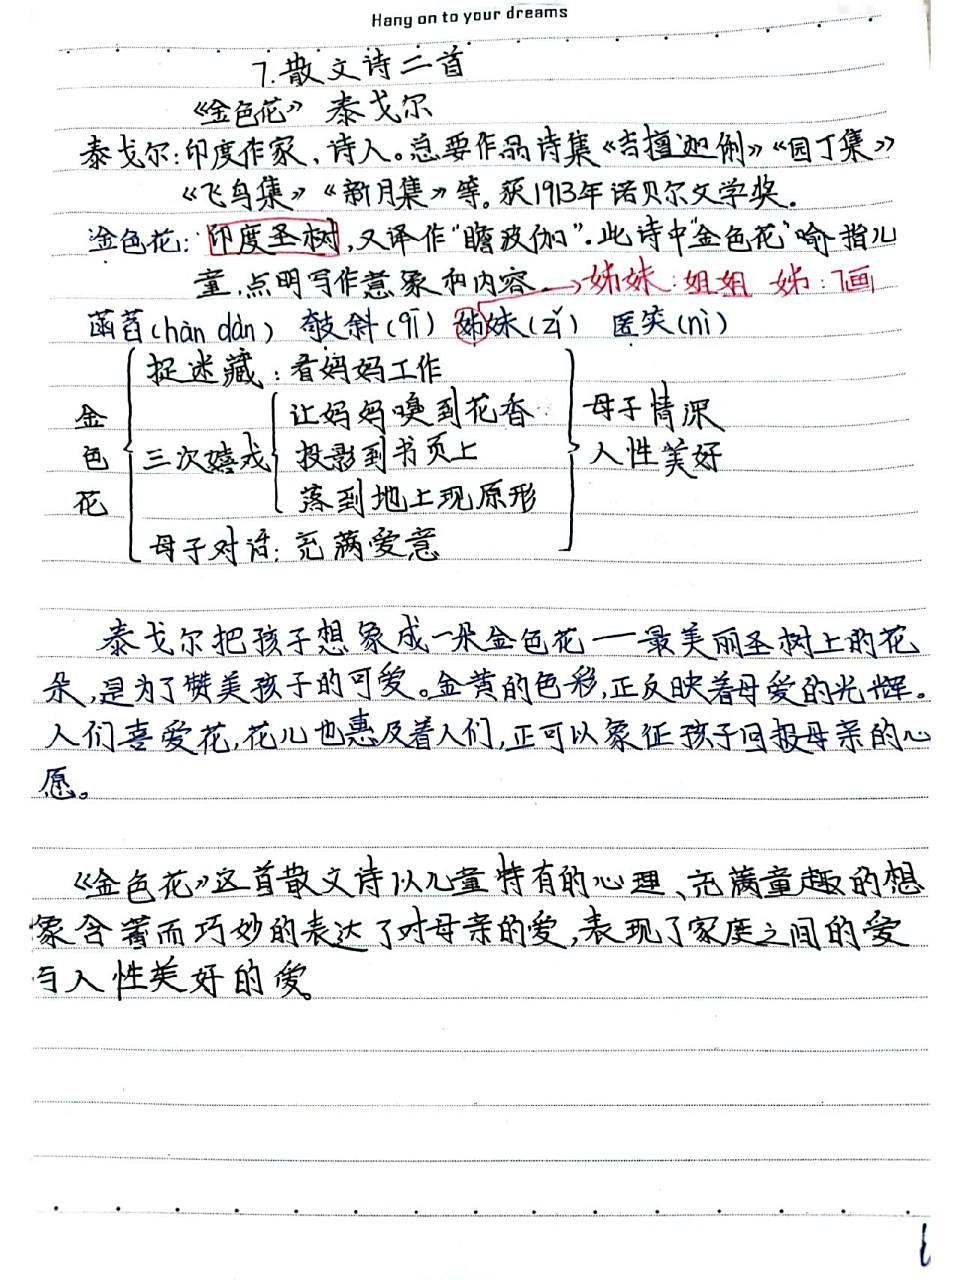 Hang on to your dreams
7.散文诗二首
《金色花》 泰戈尔
泰戈尔:印度作家、诗人。总要作品诗集《吉檀迦俐》《园丁集》
《飞鸟集》《新月集》等。获1913年诺贝尔文学奖.
金色花: 印度圣树,又译作"瞻波伽".此诗中"金色花"喻指儿
童,点明写作意象和内容. →姊妹:姐姐 姊:7画
菡萏(hàn dàn) 攲斜(qī) 姊妹(zǐ) 匿笑(nì)
捉迷藏:看妈妈工作
金色花
三次嬉戏
让妈妈嗅到花香
投影到书页上
落到地上现原形
母子对话:充满爱意
母子情深
人性美好
泰戈尔把孩子想象成一朵金色花——最美丽圣树上的花
朵,是为了赞美孩子的可爱。金黄的色彩,正反映着母爱的光辉。
人们喜爱花,花儿也惠及着人们,正可以象征孩子回报母亲的心
愿。
《金色花》这首散文诗以儿童特有的心理、充满童趣的想
象含蓄而巧妙的表达了对母亲的爱,表现了家庭之间的爱
与人性美好的爱。